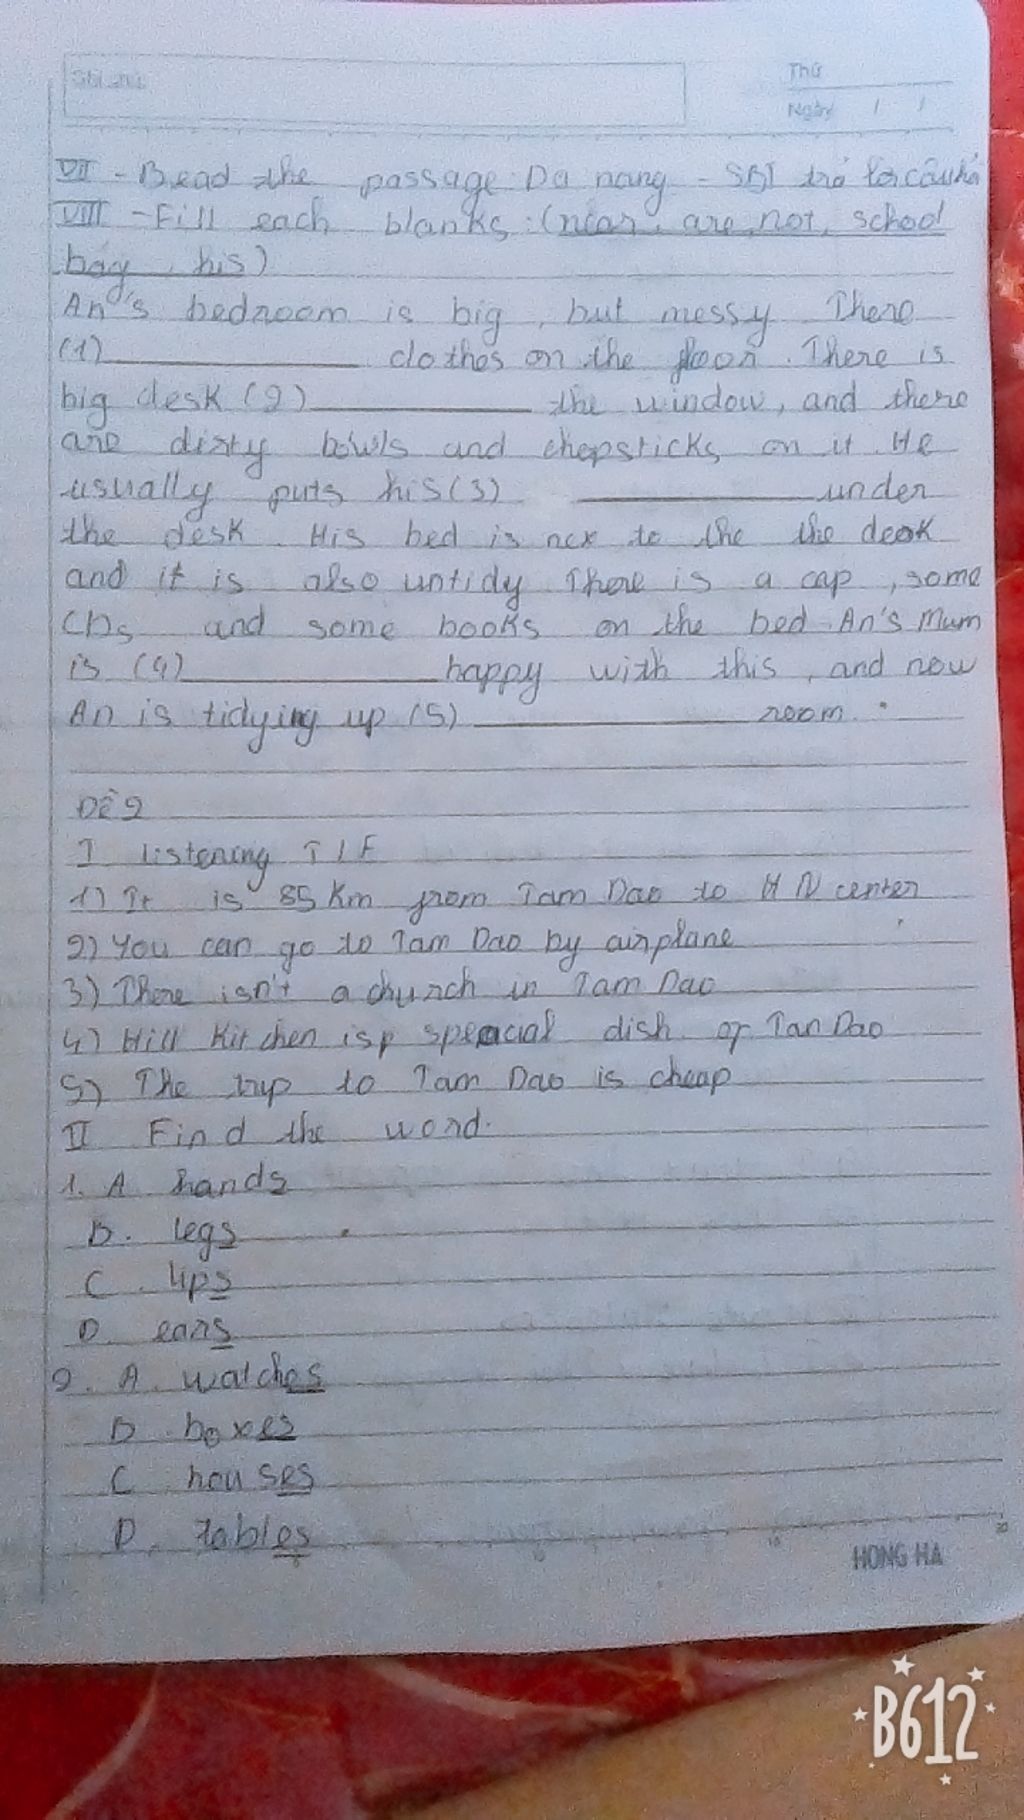 Thứ
Ngày / /
VII - Read the passage Da nang - SBT trả lời câu hỏi
VIII - Fill each blanks : (near, are, not, school
bag, his)
An's bedroom is big, but messy There
(1)__________ clothes on the floor. There is
big desk (2)__________ the window, and there
are dirty bowls and chopsticks on it He
usually puts his (3) __________ under
the desk. His bed is nex to the the desk
and it is also untidy There is a cap, some
CDs and some books on the bed An's Mum
is (4)__________ happy with this, and now
An is tidying up (5) __________ room.
Đề 2
I listening T/F
1) It is 85 Km from Tam Dao to HN center
2) You can go to Tam Dao by airplane
3) There isn't a church in Tam Dao
4) Hill Kitchen is special dish of Tan Dao
5) The trip to Tam Dao is cheap
II Find the word.
1. A hands
B. legs
C. lips
D. ears
2. A. watches
B boxes
C houses
D. tables
HONG HA
B612